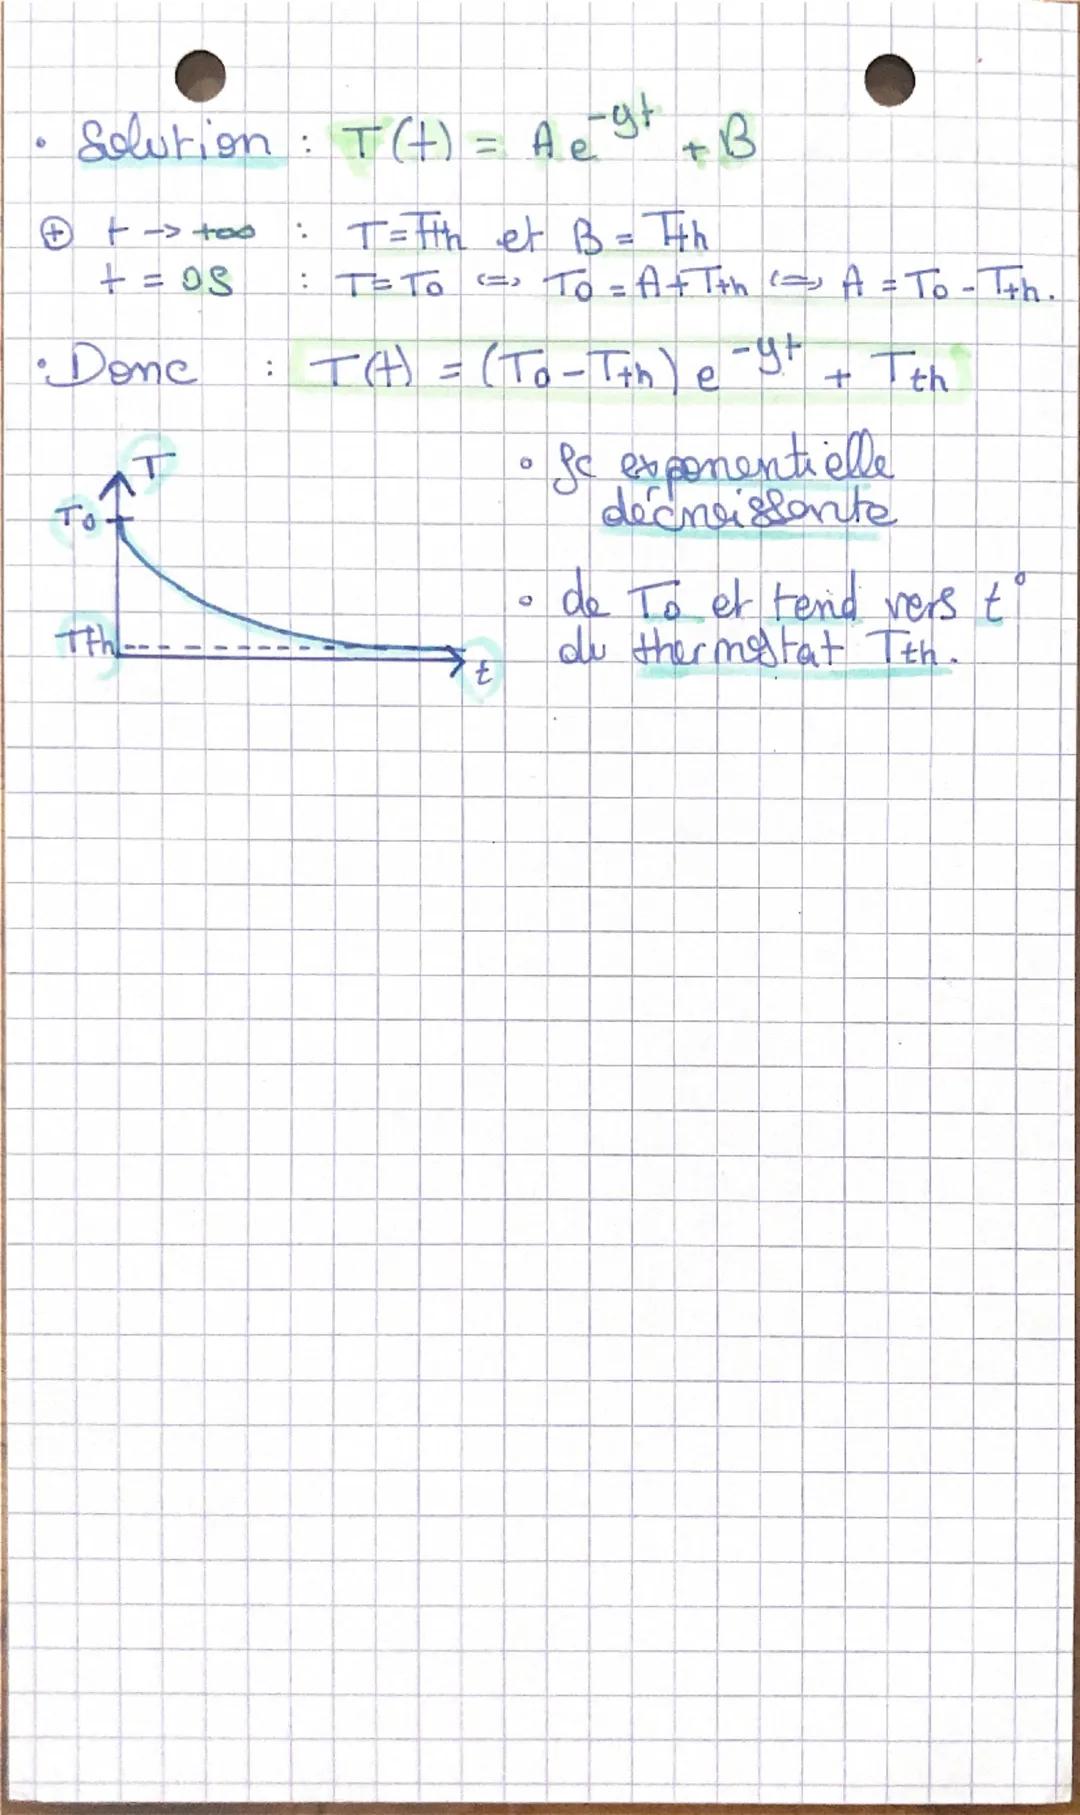 • Solution : T(t) = A e^-yt + B
⊕ t → +∞ : T = Tth et B = Tth
t = 0s : T = T0 <=> T0 = A + Tth <=> A = T0 - Tth.
• Donc : T(t) = (T0 - Tth) e^-yt + Tth
T
T0
Tth
t
• fc exponentielle
décroissante
• de T0 et tend vers t°
du thermostat Tth.